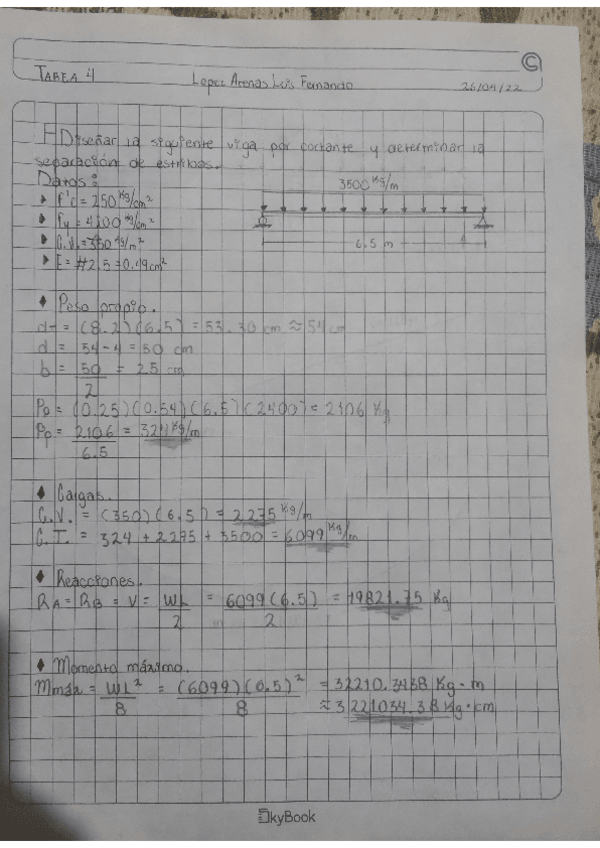 ©
TAREA 4
Lopez Arenas Luis Fernando
26/04/22
Diseñar la siguiente viga por cortante y determinar la
separación de estribos.
Datos:
f'c = 250 Kg/cm²
fy = 4200 Kg/cm²
C.V. = 350 Kg/m²
E = #2.5 = 0.49 cm²
3500 Kg/m
6.5 m
♦ Peso propio.
dt = (8.2)(6.5) = 53.30 cm ≈ 54 cm
d = 54 - 4 = 50 cm
b = 50/2 = 25 cm
Pp = (0.25)(0.54)(6.5)(2400) = 2106 Kg
Pp = 2106/6.5 = 324 Kg/m
♦ Cargas.
C.V. = (350)(6.5) = 2275 Kg/m
C.T. = 324 + 2275 + 3500 = 6099 Kg/m
♦ Reacciones.
RA = RB = V = WL/2 = 6099(6.5)/2 = 19821.75 Kg
♦ Momento máximo.
Mmáx = WL²/8 = (6099)(6.5)²/8 = 32210.3438 Kg·m
≈ 3221034.38 Kg·cm
SkyBook